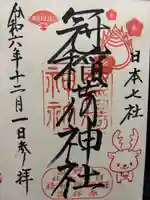 日本七社
冠稲荷神社
令和六年十二月一日参拝